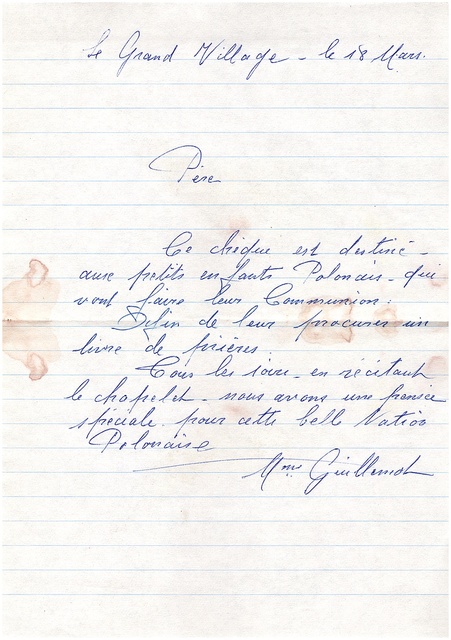 Le Grand Village - le 18 Mars.
Père
Ce chèque est destiné -
aux petits enfants Polonais - qui
vont faire leur Communion :
Afin de leur procurer un
livre de prières.
Tous les soirs - en récitant
le chapelet - nous avons une pensée
spéciale pour cette belle Nation
Polonaise
Mme Guillemot